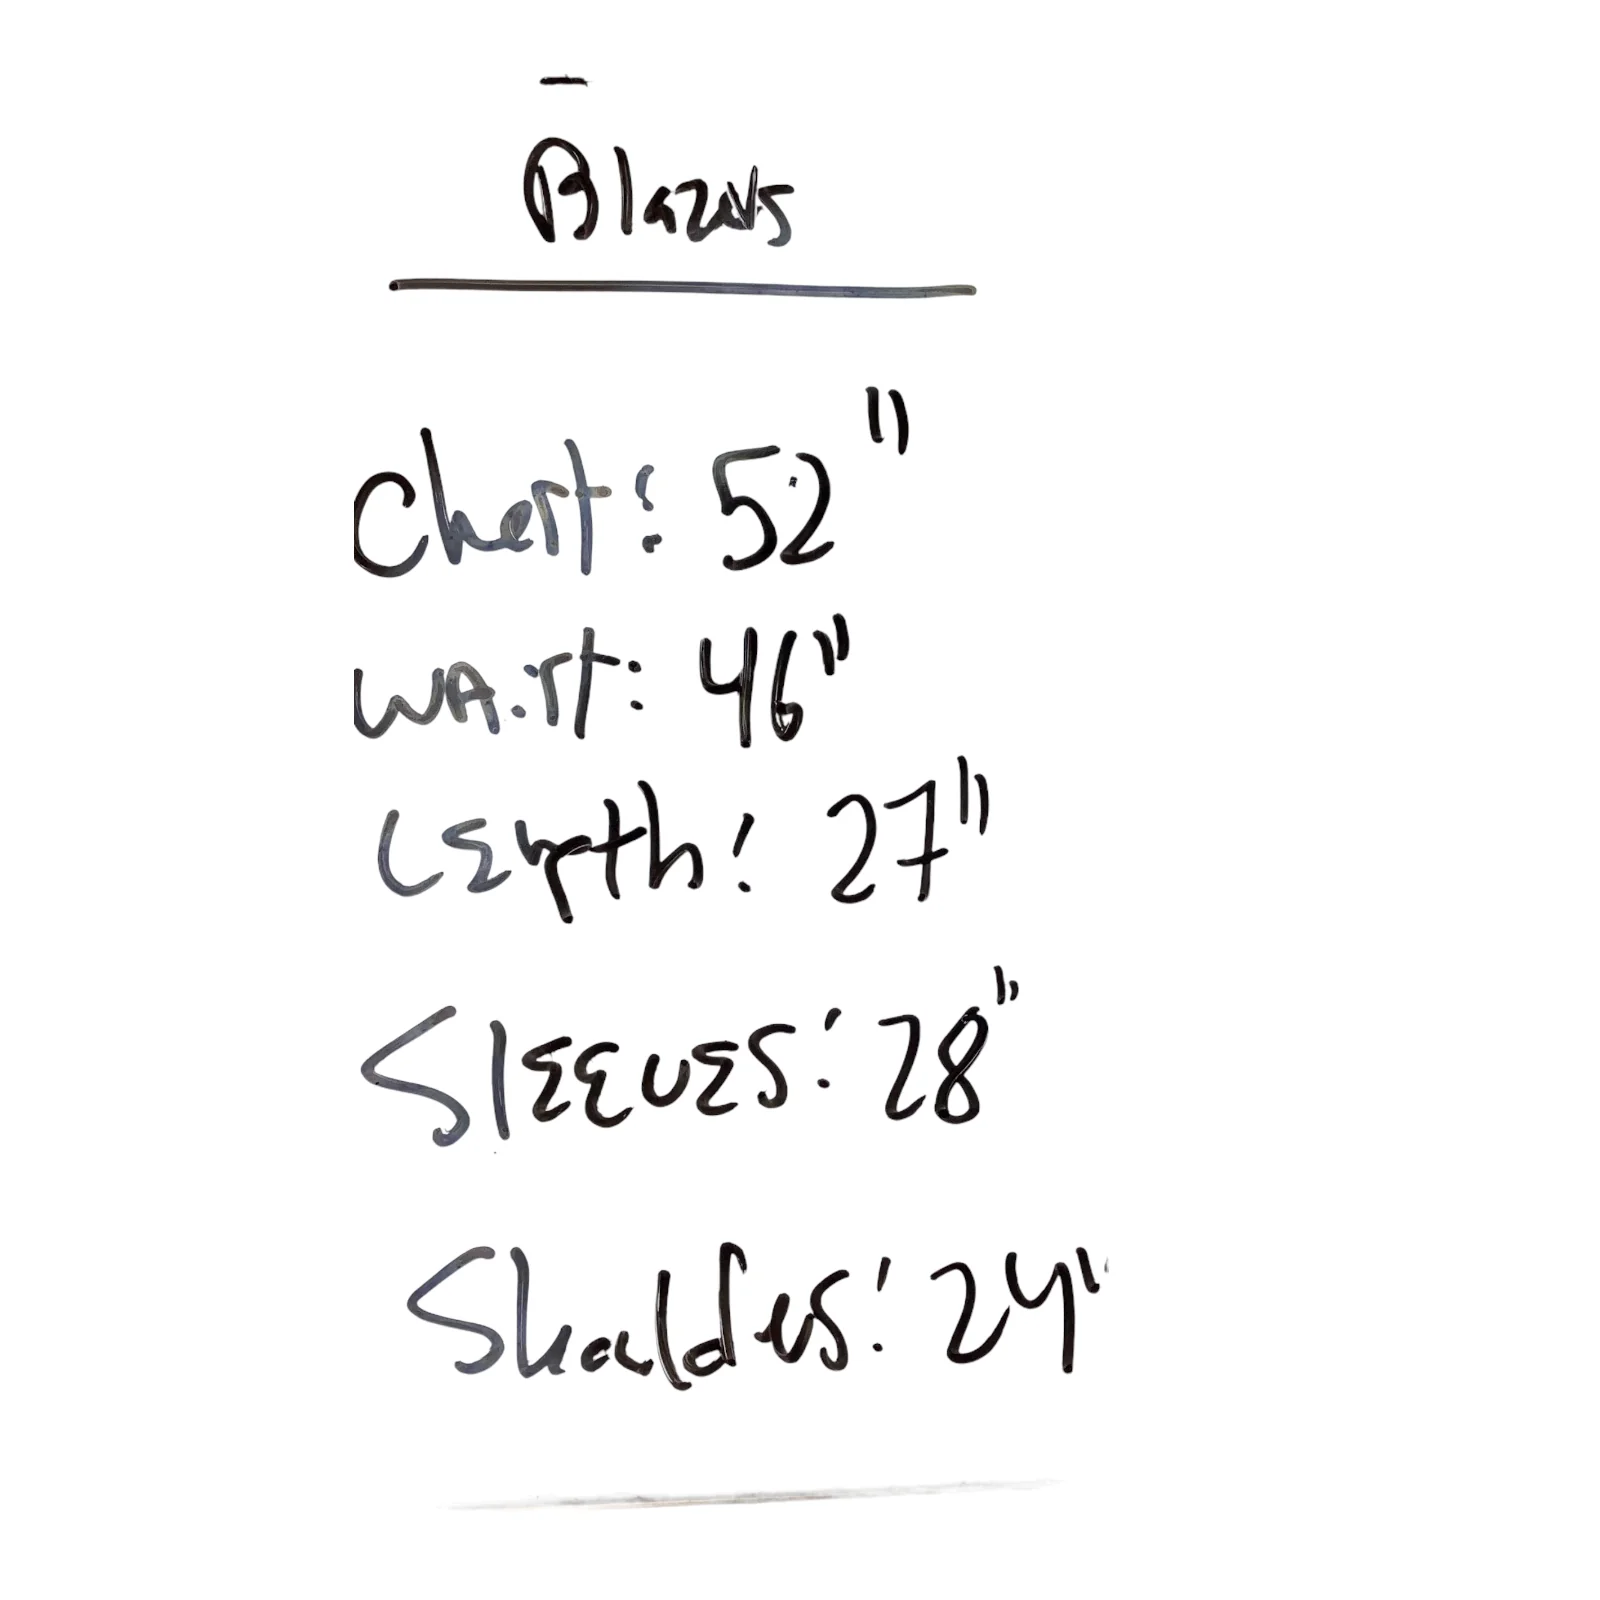 Blazers
Chest: 52"
WAist: 46"
LEngth: 27"
SlEEVES: 28"
Shoulders: 24"